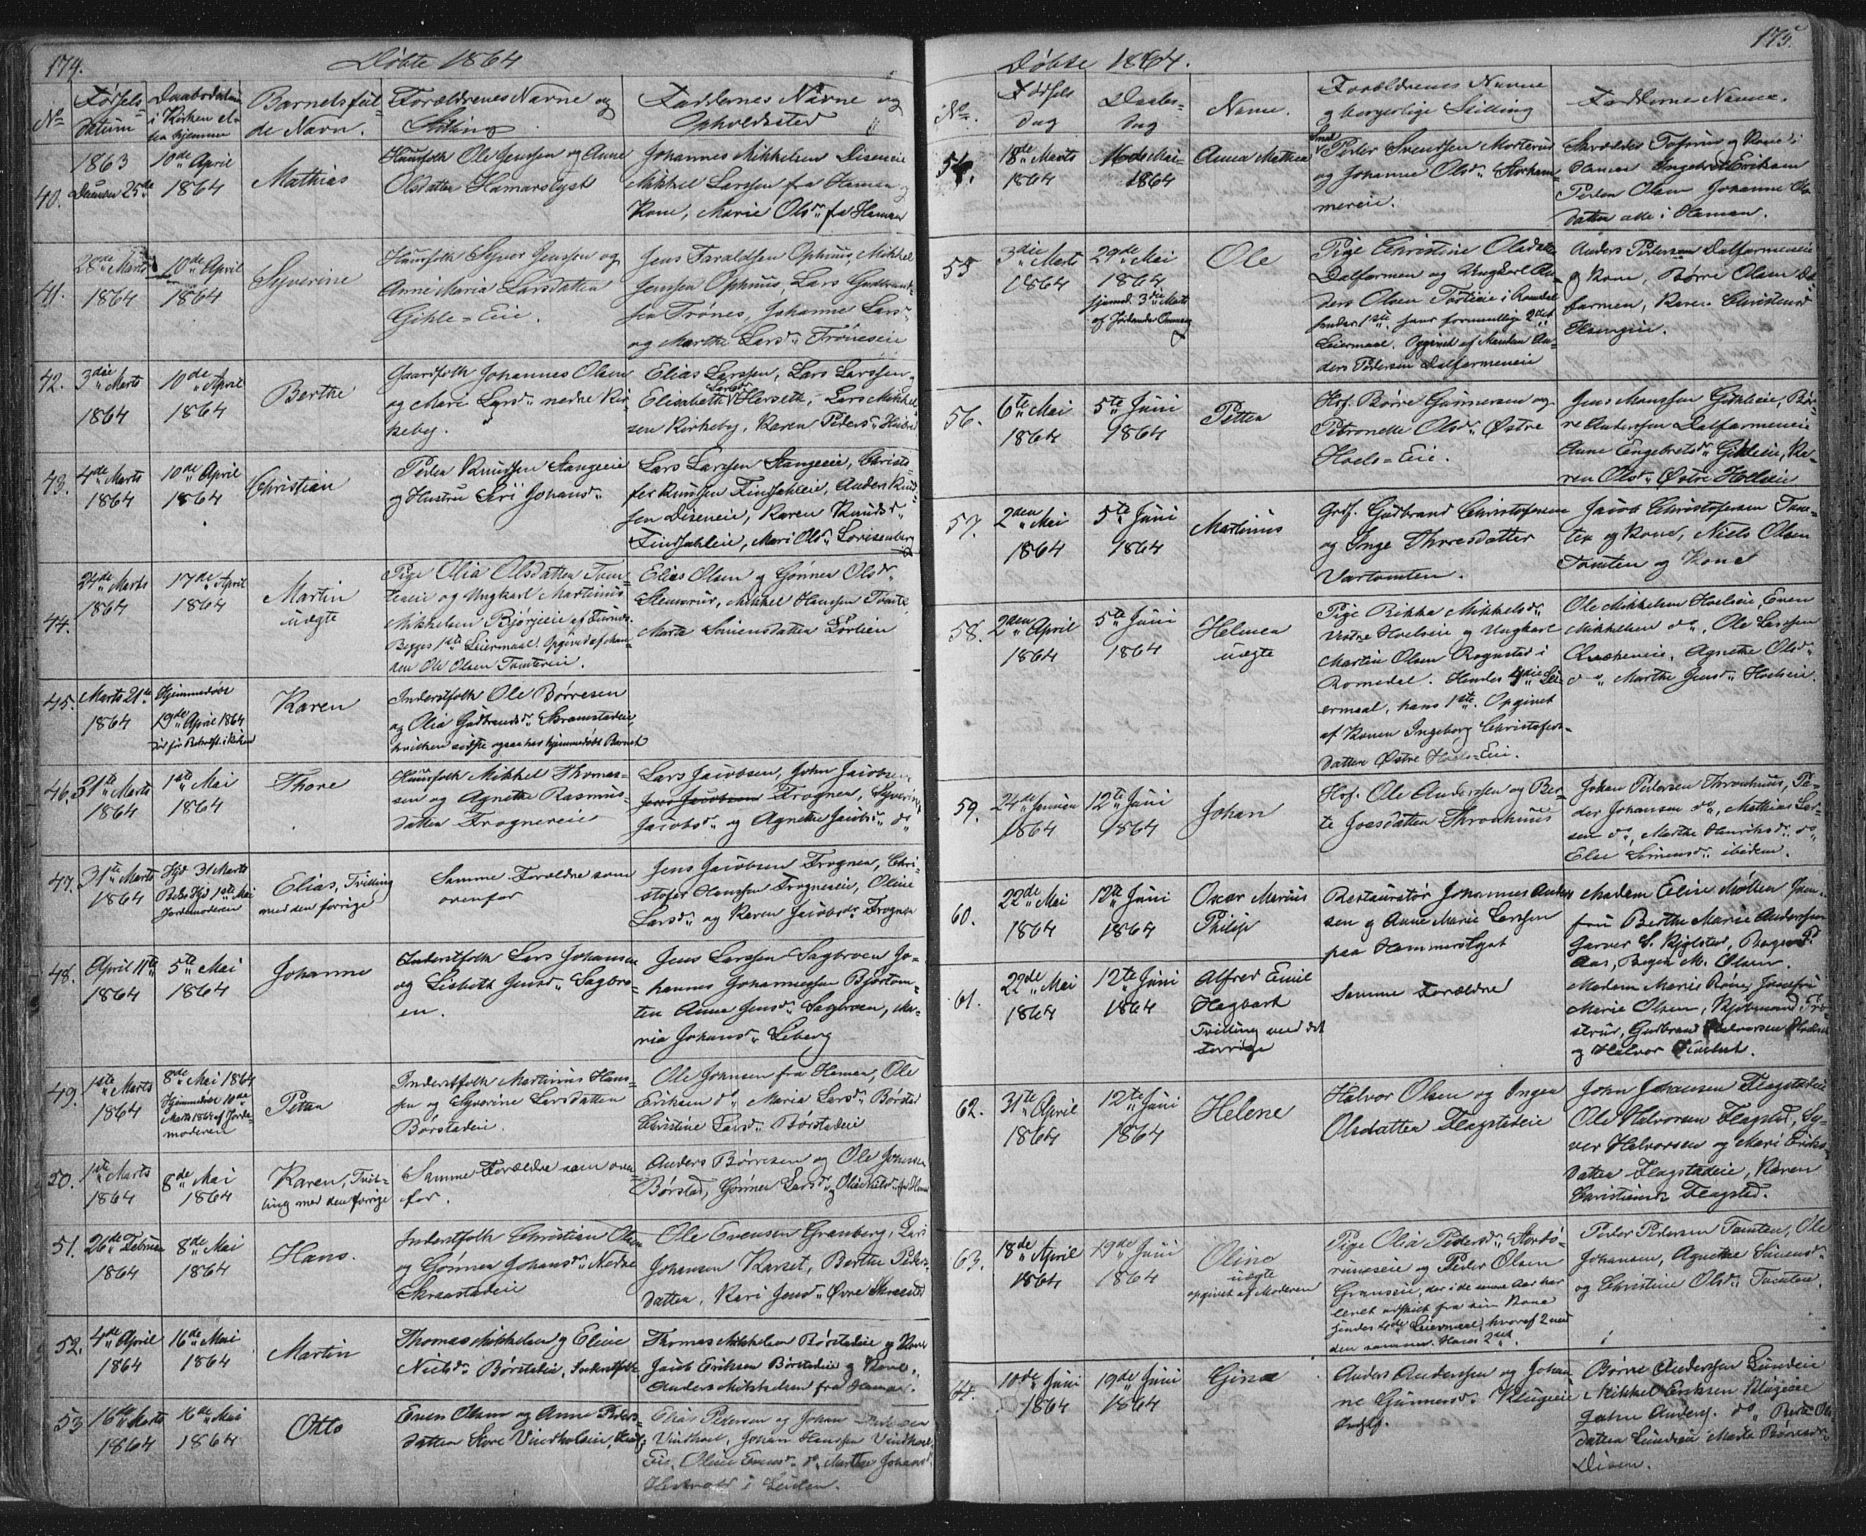 174.
Døbte 1864
No
Fødsels
datum
Daabsdatum
i Kirken el-
ler hjemme
Barnets ful-
de Navn.
Forældrenes Navne og
Stilling
Faddernes Navne og
Opholdssted
40.
1863
Decemb 25de
10de April
1864
Mathias
Huusfolk Ole Jenssen og Anne
Olsdatter Hamarslyst
Johannes Mikkelsen Diseneie
Mikkel Larssen fra Hamar og
Kone, Marie Olsd. fra Hamar
41.
28de Marts
1864
10de April
1864
Syverine
Huusfolk Syver Jenssen og
Anne Maria Larsdatter
Gihle-Eie.
Jens Faraldsen Ophuus, Mikkel
Jenssen Ophuus, Lars Gudbrand
fra Frönes, Johanne Lars-
og Marthe Larsd. Fröneseie
42.
3die Marts
1864
10de April
1864
Berthe
Gaardfolk Johannes Olsen
og Mari Larsd. nedre Kir-
keby.
Elias Larssen, Lars Larssen og
Elisabeth Larsd. Herseth, Lars Mikkel-
sen Kirkeby, Karen Peders.
43.
4de Marts
1864
10de April
1864
Christian
Peder Knudssen Stangeeie
og Hustru Siri Johansd.
Lars Larssen Stangeeie, Christo-
fer Knudsen Findsahleie, Anders Knud-
sen Diseneie, Karen Knudsd.
Findsahleie, Mari Olsd. Lovisenberg
44.
24de Marts
1864
17de April
1864
Martin
uægte
Pige Olia Olsdatter Tom-
tereie og Ungkarl Martinus
Mikkelsen Bjørgeeie af Furnes
Begges 1ste Leiermaal. Opgivet af Man-
den Ole Olsen Tomtereie.
Elias Olsen og Gønner Olsd.
Stensrud, Mikkel Hanssen
Marte Simensdatter Sörlien
45.
Marts 21de
1864
Hjemmedøbt
19de April 1864
Karen
Inderstfolk Ole Børresen
og Olia Gudbrandsd. Skramstadeie
hvilken sidste ogsaa har hjemmedøbt Barnet
46.
31te Marts
1864
1ste Mai
1864
Thore
Huusfolk Mikkel Thomas-
sen og Agnethe Rasmus-
datter Frognereie
Lars Jacobsen, John Jacobsen
Frogner, Syverine
Jacobsd. og Agnethe Jacobsd. do
47.
31te Marts
1864
Hjd 31 Marts
1ste Mai
Jordemoderen
Elias, Tvilling
med den forrige
Samme Forældre som
ovenfor
Jens Jacobsen Frogner, Chri-
stofer Hanssen Frognereie, Oline
Larsd. og Karen Jacobsd. Frogner
48.
April 11te
1864
5te Mai
1864
Johanne
Inderstfolk Lars Johansen
og Lisbeth Jensd. Sagbro-
en.
Jens Larssen Sagbroen Jo-
hannes Johannessen Bjørtom-
ten Anne Jensd. Sagbroen, Ma-
ria Johansd. Leberg
49.
1ste Marts
1864
8de Mai 1864
Hjemmedøbt 10de
Marts 1864 af Jorde-
moderen
Petter
Inderstfolk Martinus Hans-
sen og Syverine Larsdatter
Børstadeie.
Ole Johnsen fra Hamar, Ole
Eriksen do, Maria Larsd. Børstad
Christine Larsd. Børstadeie
50.
1ste Marts
1864
8de Mai
1864
Karen, Tvil-
ling med den forrige
Samme Forældre som oven-
for.
Anders Børresen og Ole Johnsen
Børstad, Gønner Larsd.
51.
26de Februar
1864
8de Mai
1864
Hans.
Inderstfolk Christian Olsen
og Gønner Johansd. Nedre
Skraastadeie
Ole Evensen Granberg, Lars
Johansen Karset, Berthe Peders-
datter, Kari Jensd. Øvre Skraastad
52.
4de April
1864
16de Mai
1864
Martin
Thomas Mikkelsen og Eline
Nielsd. Børstadeie, Inderstfolk
Thomas Mikkelsen Børstadeie og Kone
Jacob Eriksen Børstadeie og Kone,
Anders Mikkelsen fra Hamar.
53
16de Marts
1864
16de Mai
1864
Otto
Even Olsen og Anne Peders-
datter Store Vindholseie,
Elias Pedersen og Johan Pedersen
Vindhoel, Johan Hanssen Vindhoel
Eie, Oline Evensd. do, Marthe Johansd.
i Leuten.
175.
Døbte 1864.
No.
Fødsels
dag
Daabs-
dag
Navne.
Forældrenes Navne
og borgerlige Stilling
Faddernes Navne.
54.
18de Marts
1864
16de Mai
1864
Anna Mathea
Peder Svendsen Morterud
og Johanne Olsd. Storham-
mereie.
Skrædder Tofsrud og Kone i
Hamar Ingebret Eriksen
Peder Olsen Johanne Ols-
datter alle i Hamar.
55
3die Marts
1864
29de Mai
1864
hjemd. 3die Marts
Ole
Pige Christine Olsdatter
Dalfarmen og Ungkarl An-
ders Olsen Torseie i Romedal
hendes 1ste hans formentlig 2det
Leiermaal. Opgivet af Manden An-
ders Pedersen Dalfarmeneie
Anders Pedersen Dalfarmeneie
og Kone, Børre Olsen Dal-
farmen, Karen Christensd.
56.
6te Mai
1864
5te Juni
1864
Petter
Hsf. Børre Gunnersen og
Petronelle Olsd. Østre
Hoels-Eie.
Jens Monssen Gihleeie, Bør-
re Anderssen Dalfarmeneie
Anne Engebretsd. Gihleeie, Ka-
ren Olsd. Østre Hoelseie
57.
2den Mai
1864
5te Juni
1864
Martinius
Grdf. Gudbrand Christofersen
og Inge Thoresdatter
Vartomten.
Jacob Christofersen Tom-
ter og Kone, Niels Olsen
Tomten og Kone
58.
2den April
1864
5te Juni
1864
Helmer
uægte
Pige Rikka Mikkelsd.
Vestre Hoelseie og Ungkarl
Martin Olsen Rognstad i
Romedal. Hendes 4die Lei-
ermaal, hans 1ste. Opgivet
af Konen Ingeborg Christofers-
datter Østre Hoels-Eie.
Ole Mikkelsen Hoelseie, Even
Mikkelsen do, Ole Larssen
Agnethe Olsd.
do Marthe Jensd. Hoelseie.
59.
24de Januar
1864
12te Juni
1864
Johan
Hsf. Ole Anderssen og Ber-
te Joesdatter Thronhuus
Johan Pedersen Thronhuus, Pe-
der Johansen do, Mathias Lar-
sen do, Marthe Henriksd. do
Elie Simensd. ibidem.
60.
22de Mai
1864
12te Juni
1864
Oscar Marius
Philip
Restauratør Johannes Ander-
sen og Anne Marie Larssen
paa Hammerslyst
Madam Eline Møller Jom-
fru Berthe Marie Anderssen
Garver S. Kjølstad, Bager P.
Aas, Bager M. Olsen.
61.
22de Mai
1864
12te Juni
1864
Alfred Emil
Hagbart
Tvilling med den
Forrige
Samme Forældre
Madam Marie Röne, Jomfru
Marie Olsen, Kjøbmand
Gudbrand Halvorsen
og Halvor
62.
31te April
1864
12te Juni
1864
Helene
Halvor Olsen og Inger
Olsdatter Flagstadeie
John Johansen Flagstadeie
Ole Halvorsen Flagstad, Sy-
ver Halvorsen og Mari Eriks-
datter Flagstadeie, Karen
Christiansd. Flagstad.
63.
18de April
1864
19de Juni
1864
Oline
uægte
opgivet af Moderen
Pige Olia Pedersd.
og Peder Olsen
Granseie, der i de senere Aar har
levet adskilt fra sin Kone
hendes 4de Leiermaal, hvoraf 2 med
den samme. Hans 2det.
Peder Pedersen Tomten, Ole
Johansen, Agnethe Simensd.
og Christine Olsd. Tomten.
64.
10de Juni
1864
19de Juni
1864
Gina
Anders Anderssen og Johan-
ne Gunnersd. Klugeeie
Indstf.
Børre Anderssen Lundeeie
Mikkel Eriksen Klugeeie
John Anders. do, Berthe Ols-
datter Lundeeie, Marte Børresd.
Disen.